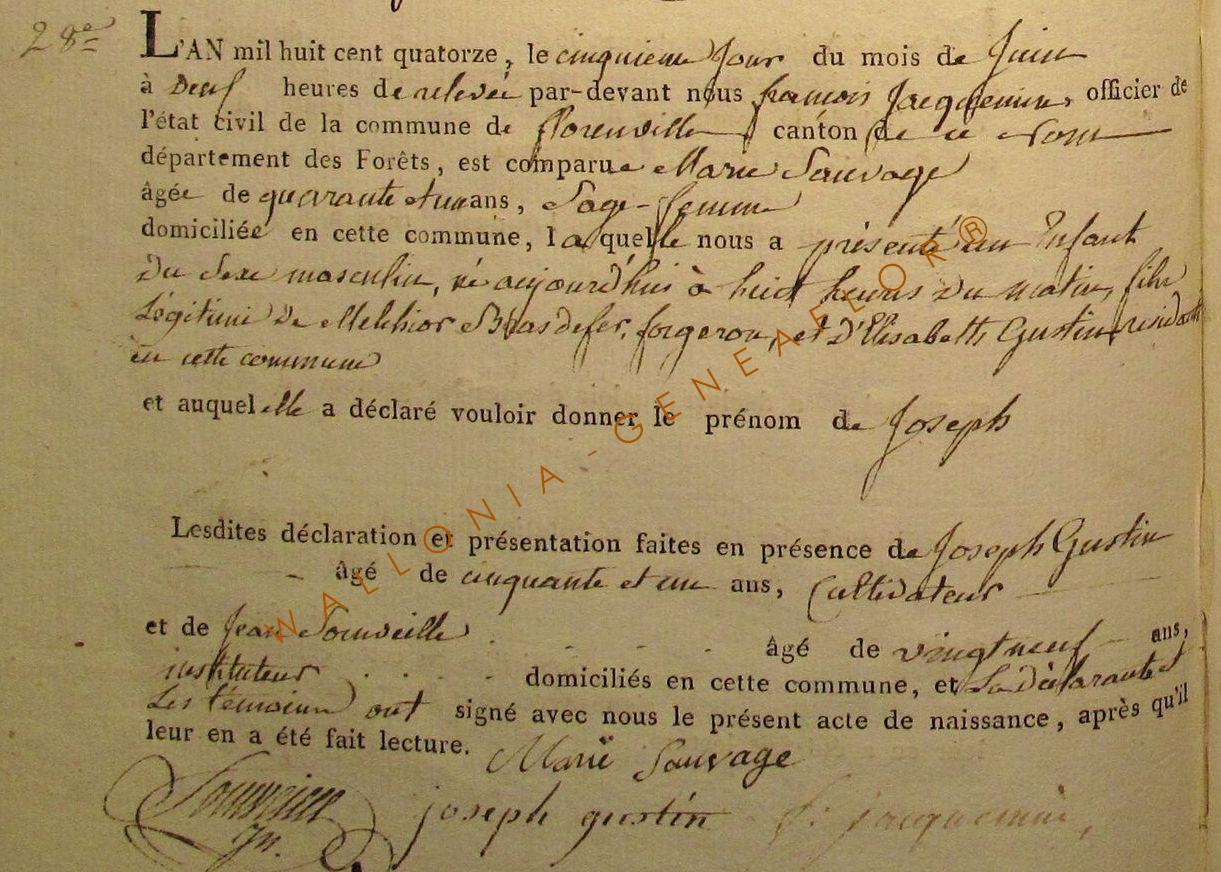 28e
L'AN mil huit cent quatorze, le cinquieme Jour du mois de Juin
à heures de relevée par-devant nous francois Jacquemin, officier de
l'état civil de la commune de florenville, canton de ce nom
département des Forêts, est comparue Marie Sauvage
âgée de quarante et un ans, Sage-femme
domiciliée en cette commune, laquelle nous a présenté un Enfant
Du Sexe masculin, né aujourd'hui à huit heures Du matin, fils
Légitime De Melchior Brasdefer, forgeron, et D'Elisabeth Gustin, residants
en cette commune
et auquel elle a déclaré vouloir donner le prénom de Joseph
Lesdites déclaration et présentation faites en présence de Joseph Gustin
âgé de cinquante et un ans, Cultivateur
et de Jean âgé de vingt neuf ans,
instituteur domiciliés en cette commune, et La Déclarante et
Les témoins ont signé avec nous le présent acte de naissance, après qu'il
leur en a été fait lecture. Marie Sauvage
joseph gustin f. jacquemin,
WALLONIA-GENEAFLOR®